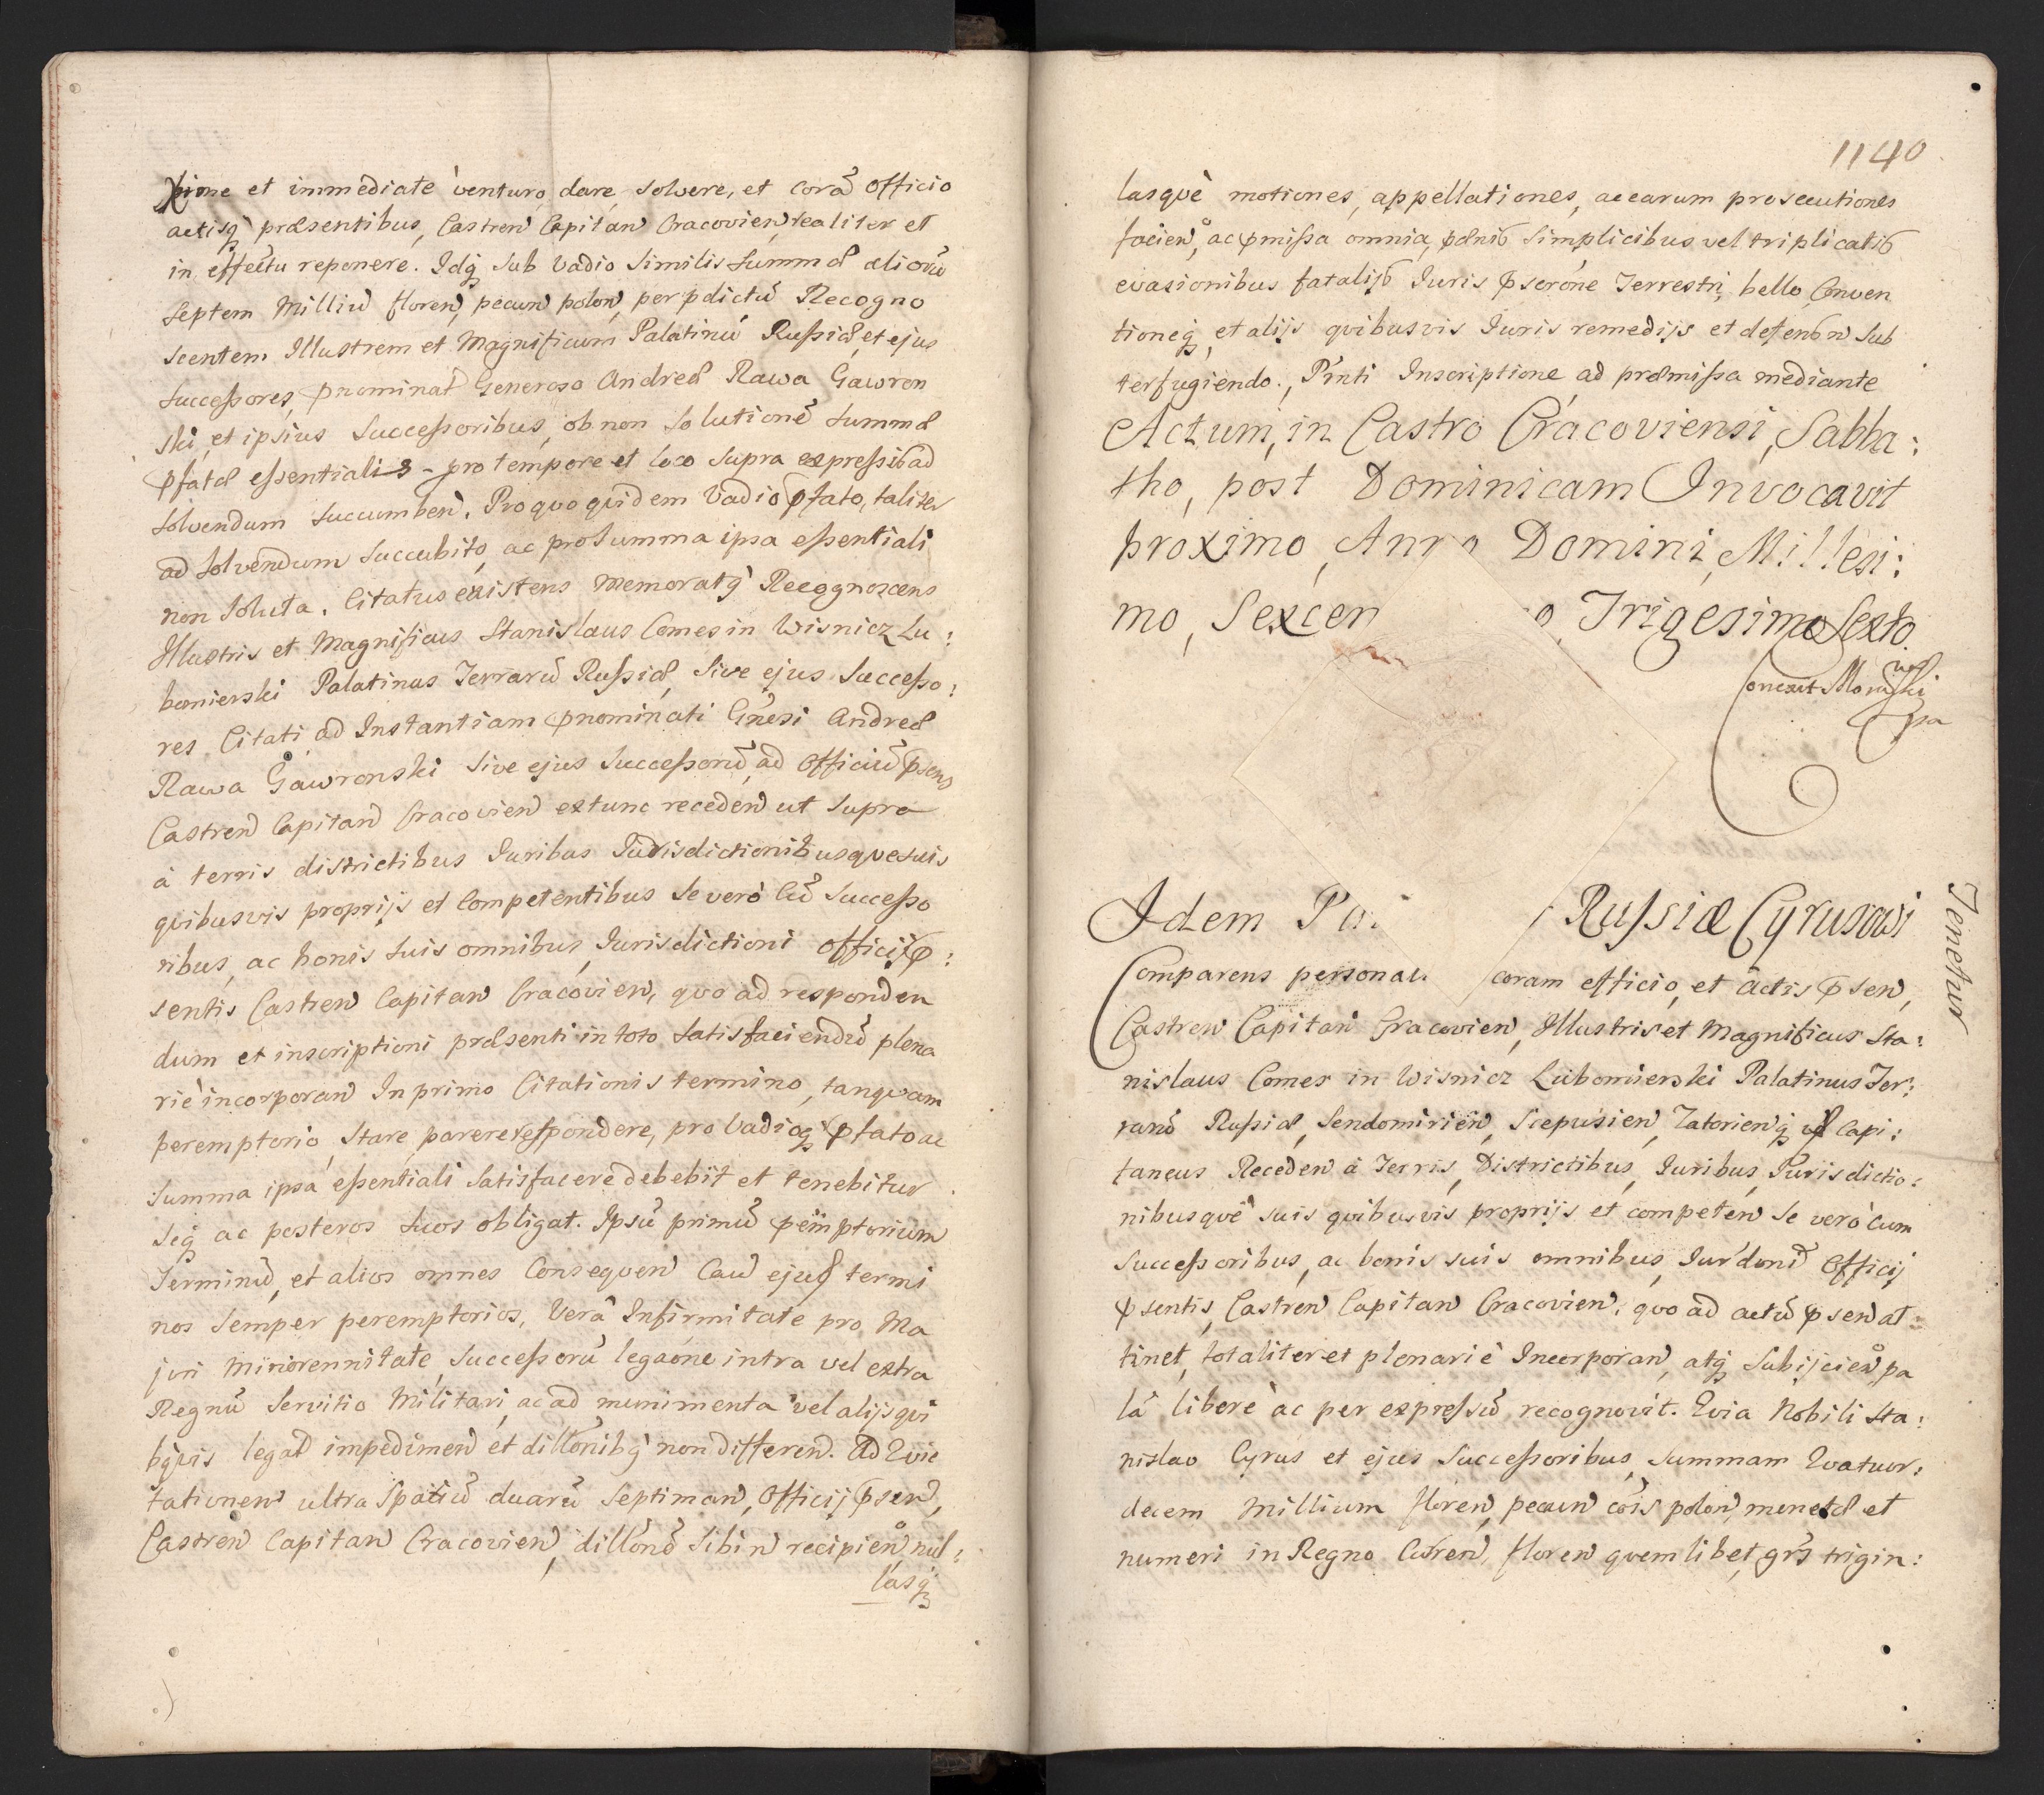 xime et immediate venturo, dare, solvere, et corã Officio
actisq́ præsentibus, Castreñ Capitañ Cracovień, realiter et
in effectu reponere. Idq́ sub vadio similis summæ aliorũ
septem Milliũ floreñ, pecuñ poloñ, per pdictũ Recogno
scentem Illustrem et Magnificum Palatinũ Russiæ, et ejus
successores, pnominat̃ Generoso Andreæ Rawa Gawron
ski, et ipsius successoribus, ob non solutionẽ summæ
pfatæ essentialis - pro tempore et loco supra expressis ad
solvendum succumbeñ. Pro quo quidem Vadio pfato, taliter
ad solvendum succubito, ac pro summa ipsa essentiali
non soluta. Citatus existens memoratq́ Recognoscens
Illustris et Magnificus Stanislaus Comes in Wisnicz Lu:
bomierski Palatinus Terrarũ Russiæ, sive ejus successo:
res Citati ad Instantiam pnominati Gñesi Andreæ
Rawa Gawronski sive ejus successorũ, ad Officiũ psens
Castreñ Capitañ Cracovień extunc recedeñ ut supra
à terris districtibus Iuribus Iurisdictionibusque suis
quibusvis proprijs et Competentibus se verò cũ successo
ribus, ac bonis suis omnibus, Iurisdictioni officij p:
sentis Castreñ Capitañ Cracovień, quo ad responden
dum et inscriptioni præsenti in toto satisfaciendũ plena
riè incorporañ In primo Citationis termino, tanquam
peremptorio, stare, parere respondere, pro Vadioq́ pfato ac
summa ipsa essentiali satisfacere debebit et tenebitur
seq́ ac posteros suos obligat. Ipsũ primũ pemptorium
Terminũ, et alios omnes Consequeñ Cauš ejus termi
nos semper peremptorios, Verâ Infirmitate pro Ma
jori minorennitate, successorũ legaóne intra vel extra
Regnũ servitio Militari, ac ad munimenta vel alijs qui
bq́vis legał impedimeñ et dillónibq́ non differeñ. Ad Evic
tationem ultra spatiũ duarũ septimañ, Officij pseñ,
Castreñ Capitañ Cracovień, dillónẽ sibi ñ recipień, nul:
lasq́
1140
lasquè motiones, appellationes, ac earum prosecutiones
facień, ac pmissa omnia, pænis simplicibus vel triplicatis
evasionibus fatalijs Iuris pscróne Terrestri, bello Conven
tioneq́, et alijs quibusvis Iuris remedijs et defenś ñ sub
terfugiendo., Pñti Inscriptione ad præmissa mediante
Actum, in Castro Cracoviensi, Sabba:
tho, post Dominicam Invocavit
proximo, Anno Domini, Millesi:
mo, Sexcen o, Trigesimo Sexto.
Idem Pa Russiæ Cyrusowi
Tenetur
Comparens personal. coram officio, et actis pseñ,
Castreñ Capitañ Cracovień, Illustris et Magnificus Sta:
nislaus Comes in Wisnicz Lubomierski Palatinus Ter:
rarũ Russiæ, Sendomirień, Scepusień, Zatorieńq́ Capi:
taneus Recedeñ à Terris, Districtibus, Iuribus, Iurisdictio:
nibusquè suis quibusvis proprijs et competeñ se verò cum
successoribus, ac bonis suis omnibus, Iur'doni Officij
psentis, Castreñ Capitañ Cracovień, quo ad actũ pseñ at:
tinet, totaliter et plenariè Incorporañ, atq́ subijcień, pa
lã liberè ac per expressũ recognovit. Quia Nobili Sta:
nislao Cyrus et ejus successoribus, summam Quatuor:
decem Millium floreñ, pecuñ cõis poloñ, monetæ et
numeri in Regno Curreñ, floreñ quemlibet, grs̃ trigin: